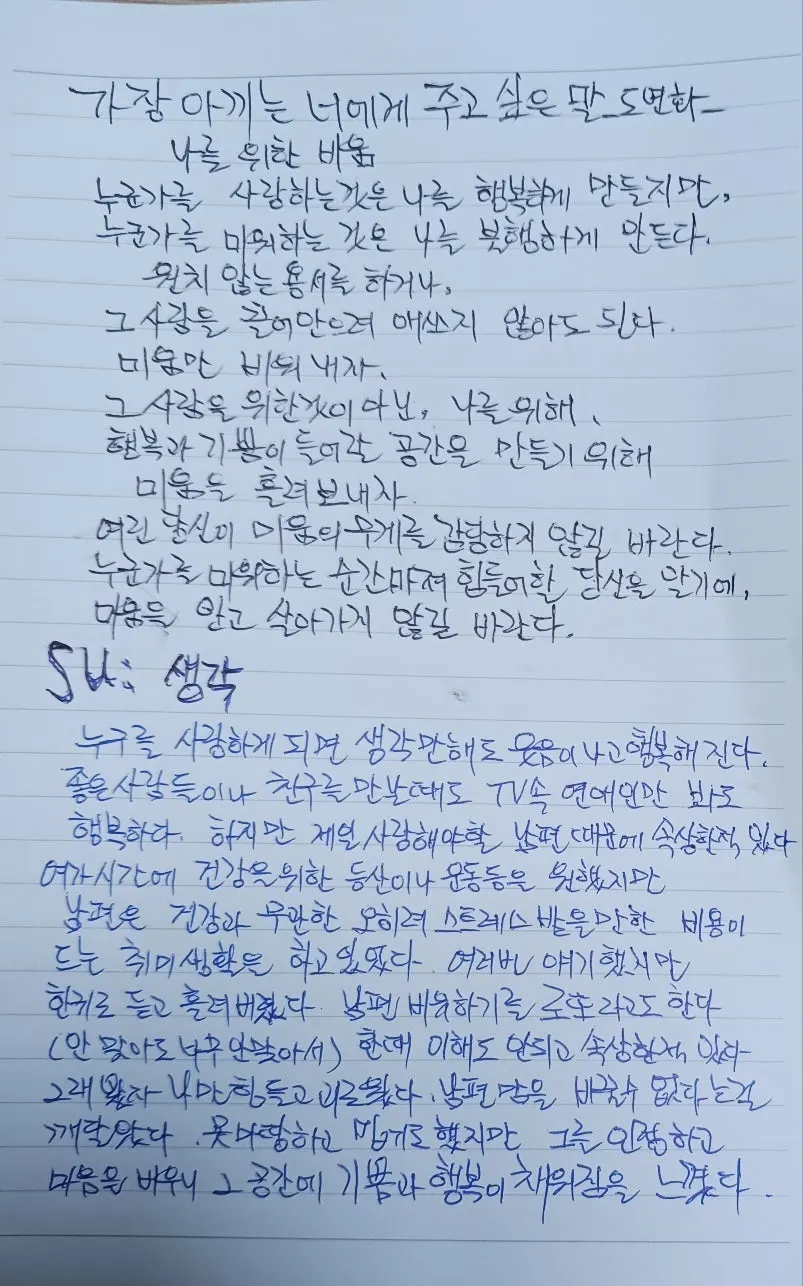 가장 아끼는 너에게 주고 싶은 말_도연화_
나를 위한 비움
누군가를 사랑하는것은 나를 행복하게 만들지만,
누군가를 미워하는 것은 나를 불행하게 만든다.
원치 않는 용서를 하거나,
그 사람을 끌어안으려 애쓰지 않아도 된다.
미움만 비워 내자.
그 사람을 위한것이 아닌, 나를 위해.
행복과 기쁨이 들어갈 공간을 만들기 위해
미움을 흘려 보내자.
여린 당신이 미움의 무게를 감당하지 않길 바란다.
누군가를 미워하는 순간마저 힘들어할 당신을 알기에,
미움을 안고 살아가지 않길 바란다.
SU: 생각
누구를 사랑하게 되면 생각만해도 웃음이나고 행복해 진다.
좋은사람들이나 친구를 만날때도 TV속 연예인만 봐도
행복하다. 하지만 제일 사랑해야할 남편 때문에 속상한적 있다
여가시간에 건강을위한 등산이나 운동등을 원했지만
남편은 건강과 무관한 오히려 스트레스 받을만한 비용이
드는 취미생활을 하고 있었다. 여러번 얘기했지만
한귀로 듣고 흘려 버렸다. 남편 비유하기를 로또라고도 한다
(안 맞아도 너무 안맞아서) 한때 이해도 안되고 속상한적 있다
그래 봤자 나만 힘들고 괴로웠다. 남편 맘을 바꿀수 없다는걸
깨달았다. 못마땅하고 밉기도 했지만 그를 인정하고
마음을 비우니 그 공간에 기쁨과 행복이 채워짐을 느꼈다.